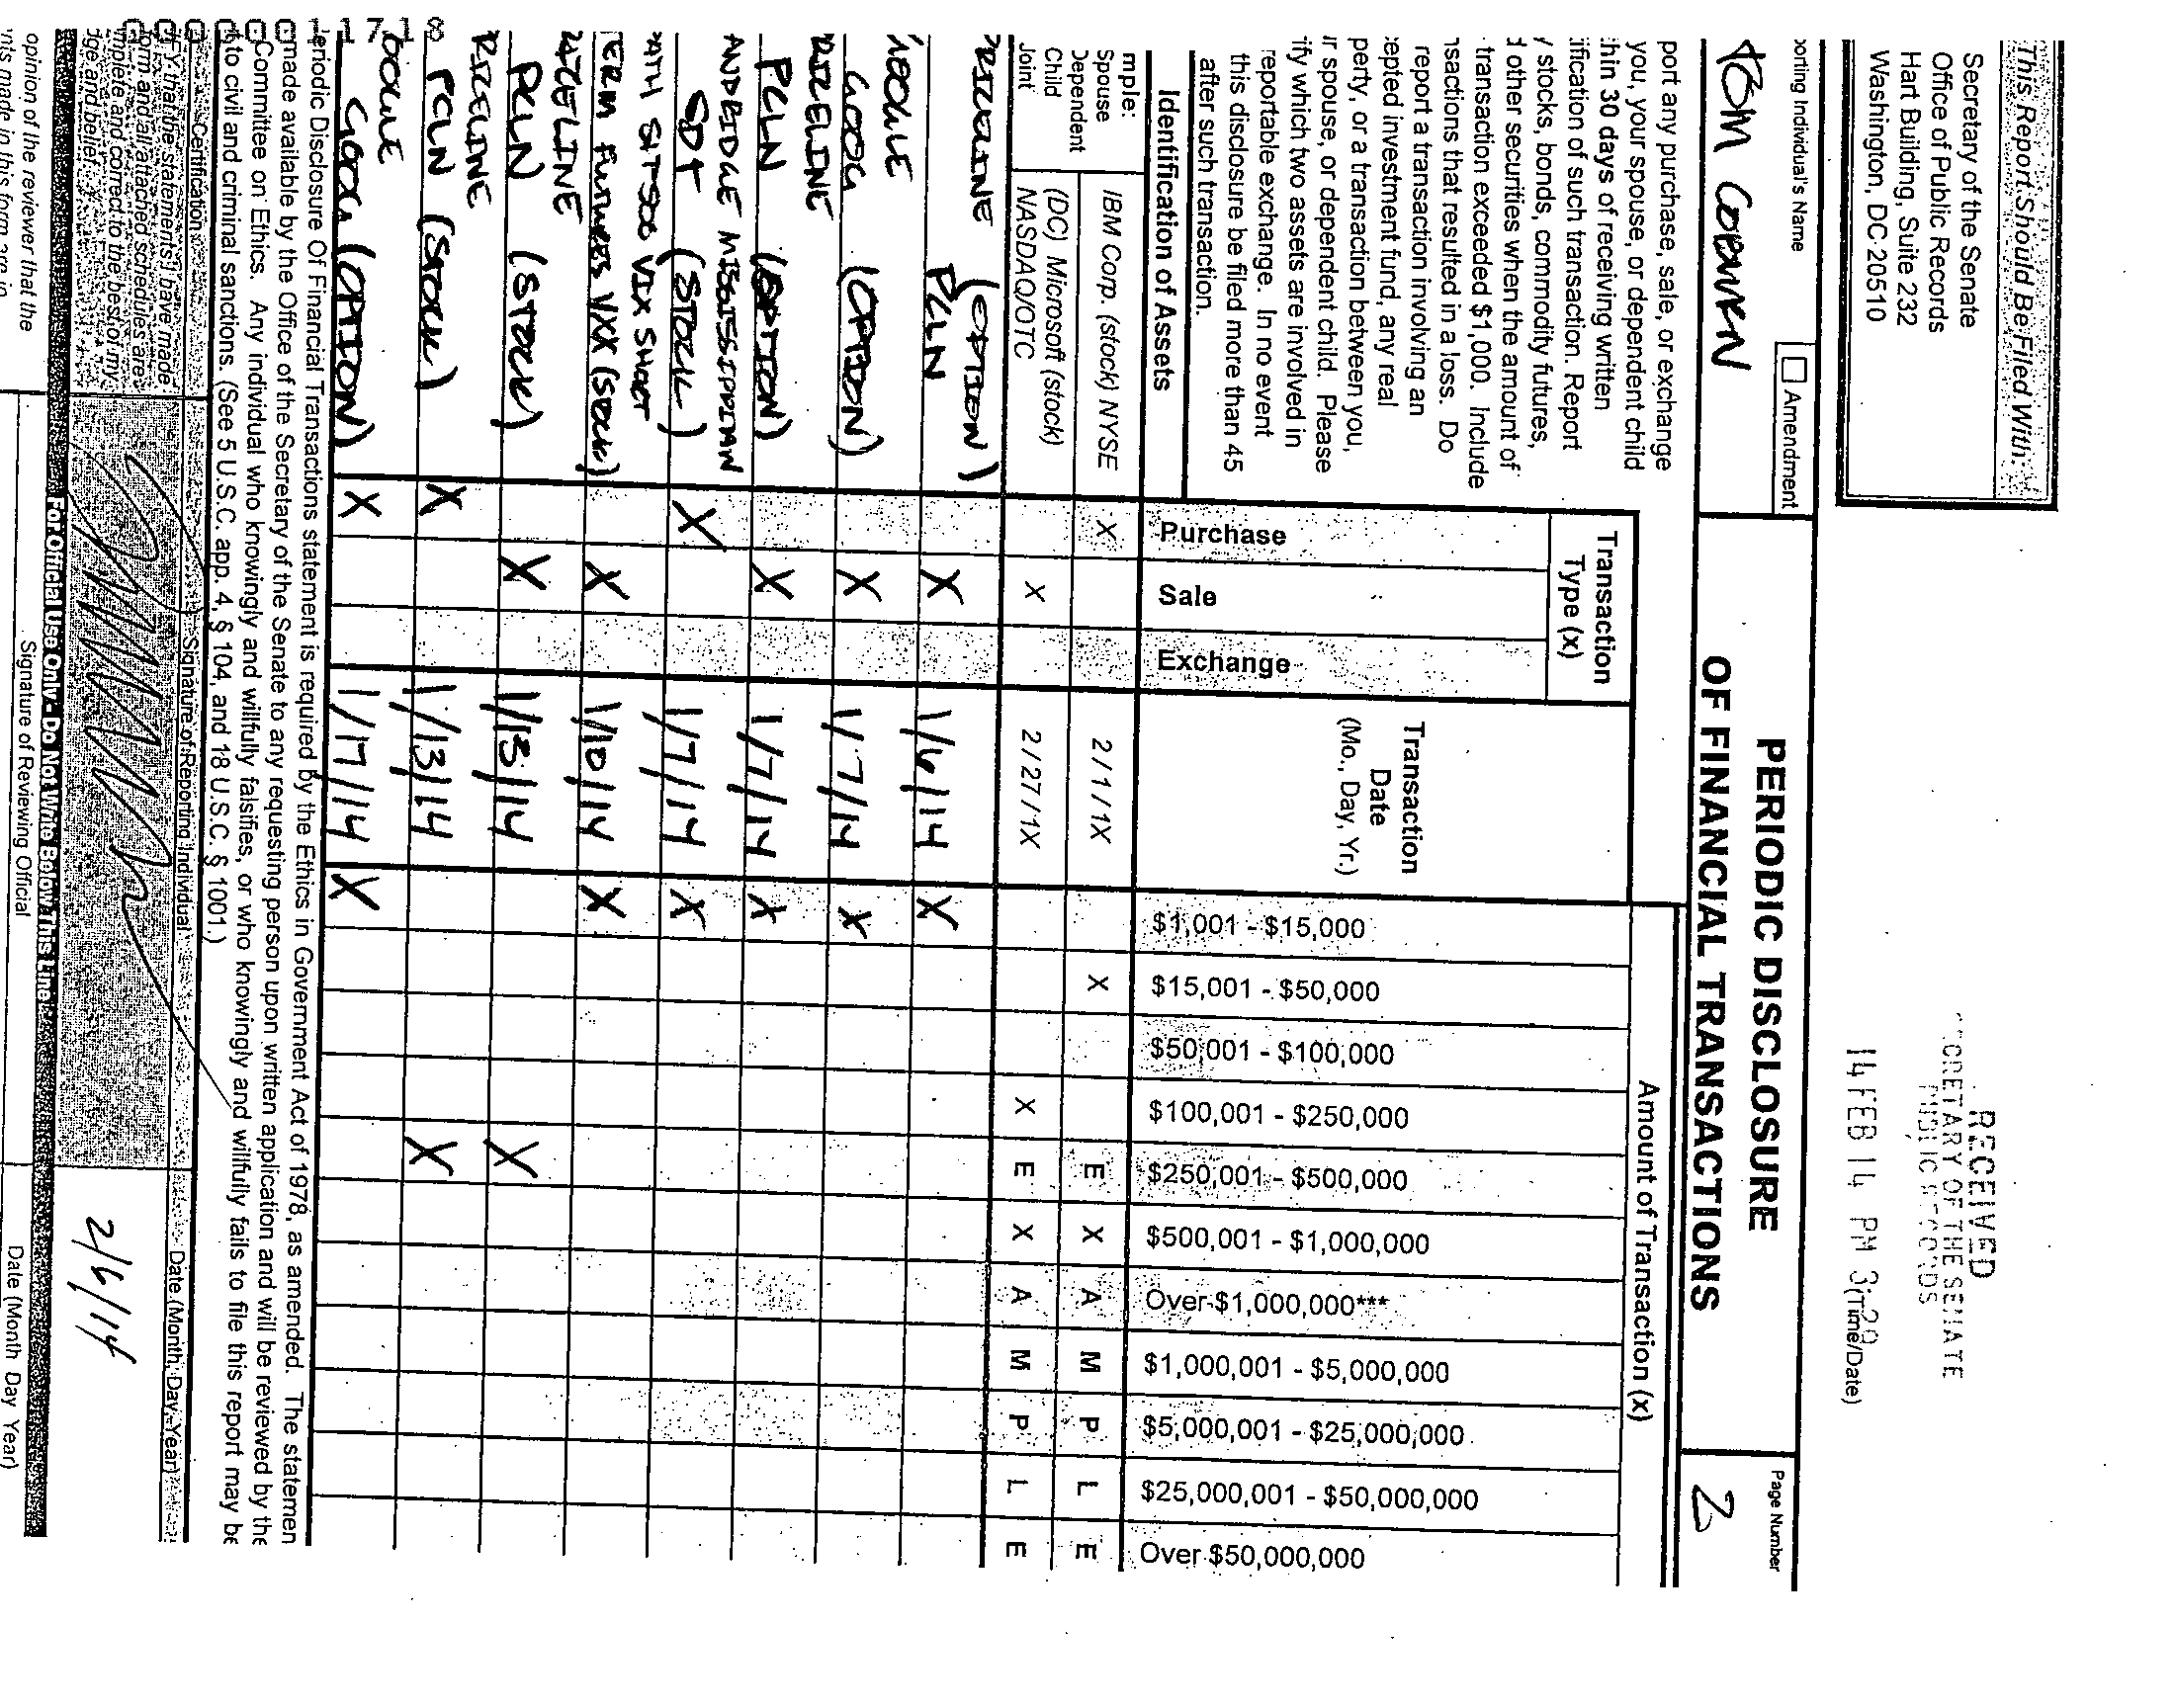 This Report Should Be Filed With:
Secretary of the Senate
Office of Public Records
Hart Building, Suite 232
Washington, DC 20510
RECEIVED
SECRETARY OF THE SENATE
14 FEB 14 PM 3:29
(Time/Date)
orting Individual's Name
Amendment
PERIODIC DISCLOSURE
OF FINANCIAL TRANSACTIONS
Page Number
2
port any purchase, sale, or exchange
you, your spouse, or dependent child
ification of such transaction. Report
hin 30 days of receiving written
y stocks, bonds, commodity futures,
d other securities when the amount of
transaction exceeded $1,000. Include
nsactions that resulted in a loss. Do
report a transaction involving an
epted investment fund, any real
perty, or a transaction between you,
ur spouse, or dependent child. Please
ify which two assets are involved in
reportable exchange. In no event
this disclosure be filed more than 45
after such transaction.
Identification of Assets
Transaction
Type (x)
Purchase
Sale
Exchange
Transaction
Date
(Mo., Day, Yr.)
Amount of Transaction (x)
$1,001 - $15,000
$15,001 - $50,000
$50,001 - $100,000
$100,001 - $250,000
$250,001 - $500,000
$500,001 - $1,000,000
Over $1,000,000***
$1,000,001 - $5,000,000
$5,000,001 - $25,000,000
$25,000,001 - $50,000,000
Over $50,000,000
mple:
Spouse
Dependent
Child
Joint
IBM Corp. (stock) NYSE X 2/1/1X X E X A M P L E
(DC) Microsoft (stock)
NASDAQ/OTC X 2/27/1X X E X A M P L E
(OPTION)
PCLN X 1/6/14 X
GOOG (OPTION) X 1/7/14 X
RICELINE
PCLN (OPTION) X 1/7/14 X
ANDRIDGE MISSISSIPPIAN
SDT (STOCK) X 1/7/14 X
VIX SHORT
TERM Futures VXX (stock) X 1/10/14 X
PCLN (STOCK) X 1/13/14 X
RICELINE
PCLN (STOCK) X 1/13/14 X
GOOG (OPTION) X 1/17/14 X
eriodic Disclosure Of Financial Transactions statement is required by the Ethics in Government Act of 1978, as amended. The statemen
made available by the Office of the Secretary of the Senate to any requesting person upon written application and will be reviewed by the
Committee on Ethics. Any individual who knowingly and willfully falsifies, or who knowingly and willfully fails to file this report may be
to civil and criminal sanctions. (See 5 U.S.C. app. 4, § 104, and 18 U.S.C. § 1001.)
Certification
Signature of Reporting Individual
Date (Month, Day, Year)
FY that the statements I have made
form and all attached schedules are
mplete and correct to the best of my
dge and belief.
2/6/14
For Official Use Only - Do Not Write Below This Line
opinion of the reviewer that the
nts made in this form are in
Signature of Reviewing Official
Date (Month Day Year)